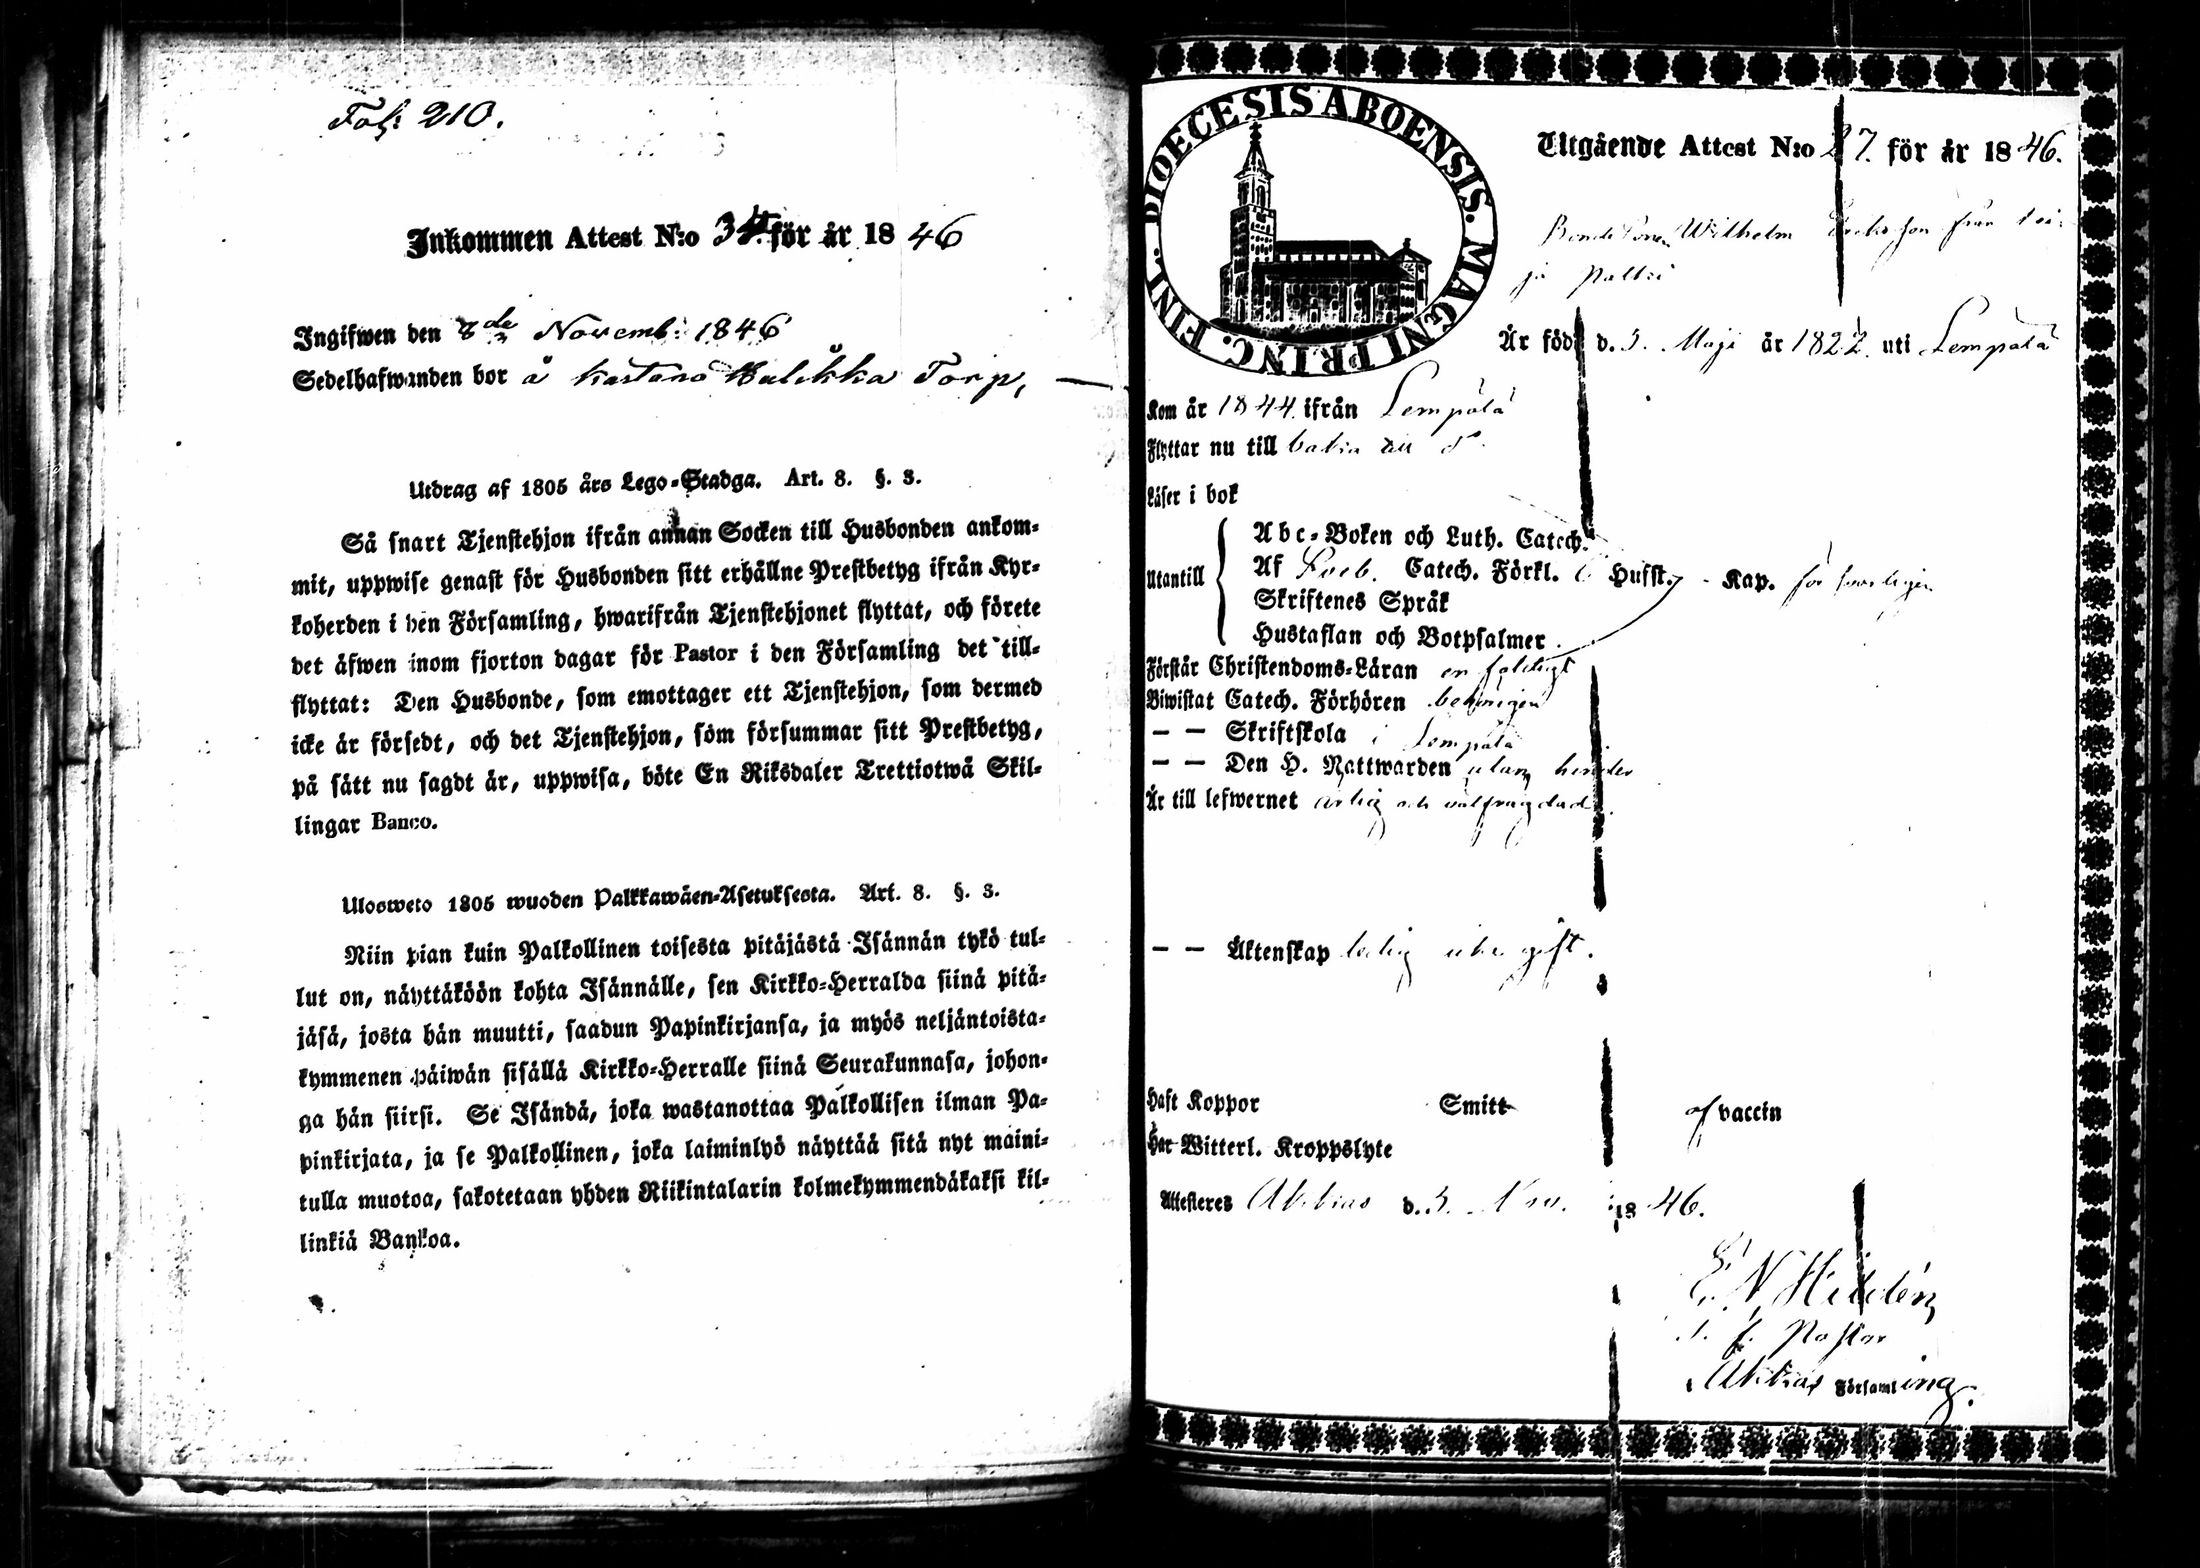 Fol: 210.
Inkommen Attest N:o 34 för år 1846
Ingifwen den 8de Novemb: 1846
Sedelhafwanden bor å Kastano Torp,
Utdrag af 1805 års Lego-Stadga. Art. 8. §. 3.
Så snart Tjenstehjon ifrån annan Socken till Husbonden ankom-
mit, uppwise genast för Husbonden sitt erhållne Prestbetyg ifrån Kyr-
koherden i den Församling, hwarifrån Tjenstehjonet flyttat, och förete
det äfwen inom fjorton dagar för Pastor i den Församling det till-
flyttat: Den Husbonde, som emottager ett Tjenstehjon, som dermed
icke är försedt, och det Tjenstehjon, som försummar sitt Prestbetyg,
på sätt nu sagdt är, uppwisa, böte En Riksdaler Trettiotwå Skil-
lingar Banco.
Ulosweto 1805 wuoden Palkkawäen-Asetuksesta. Art. 8. §. 3.
Niin pian kuin Palkollinen toisesta pitäjästä Isännän tykö tul-
lut on, näyttäköön kohta Isännälle, sen Kirkko-Herralda siinä pitä-
jäsä, josta hän muutti, saadun Papinkirjansa, ja myös neljäntoista-
kymmenen päiwän sisällä Kirkko-Herralle siinä Seurakunnasa, johon-
ga hän siirsi. Se Isändä, joka wastanottaa Palkollisen ilman Pa-
pinkirjata, ja se Palkollinen, joka laiminlyö näyttää sitä nyt maini-
tulla muotoa, sakotetaan yhden Riikintalarin kolmekymmendäkaksi kil-
linkiä Bankoa.
DIOECESIS ABOENSIS. MAGNI PRINC. FINL.
Utgående Attest N:o 27. för år 1846.
Bondesonen Wilhelm Eriksson från
Är född d. 5. Maji år 1822 uti Lempälä
Kom år 1844 ifrån Lempälä
Flyttar nu till
Läser i bok
Utantill
Abc-Boken och Luth. Catech.
Af Sveb. Catech. Förkl. 6 Hufst. - Kap. försvarligen
Skriftenes Språk
Hustaflan och Botpsalmer
Förstår Christendoms-Läran enfaldigt
Biwistat Catech. Förhören behörigen
— — Skriftskola i Lempälä
— — Den H. Nattwarden utan hinder
Är till lefwernet ärlig och välfrägdad.
— — Äktenskap ledig icke gift.
Haft Koppor Smitt af vaccin
Har Witterl. Kroppslyte
Attesteres Akkas d. 3. Nov. 1846.
E. N. Hildén
Pastor
Akkas Församling.